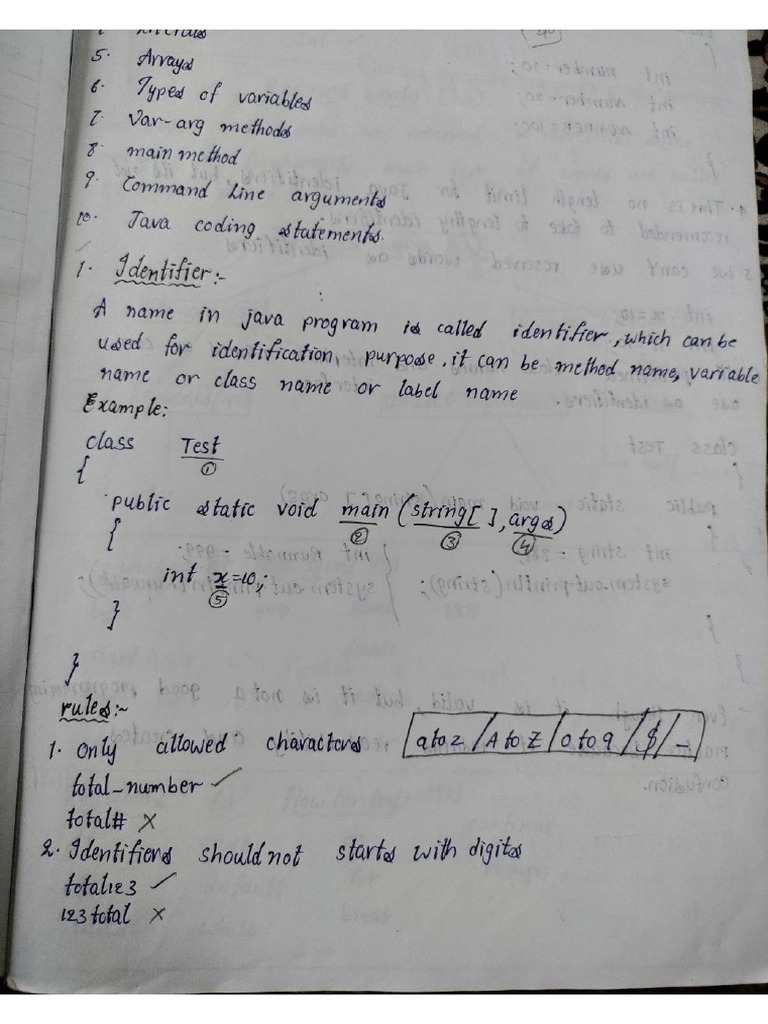 Literals
5. Arrays
6. Types of variables
7. Var-arg methods
8. main method
9. Command Line arguments
10. Java coding statements.
1. Identifier:-
A name in java program is called identifier, which can be
used for identification, purpose, it can be method name, variable
name or class name or label name.
Example:
class Test
①
{
public static void main (string[ ], args)
② ③ ④
{
int x=10;
⑤
}
}
rules:-
1. Only allowed characters a to z / A to Z / 0 to 9 / $ / _
total_number ✓
total# ×
2. Identifiers should not starts with digits
total123 ✓
123total ×